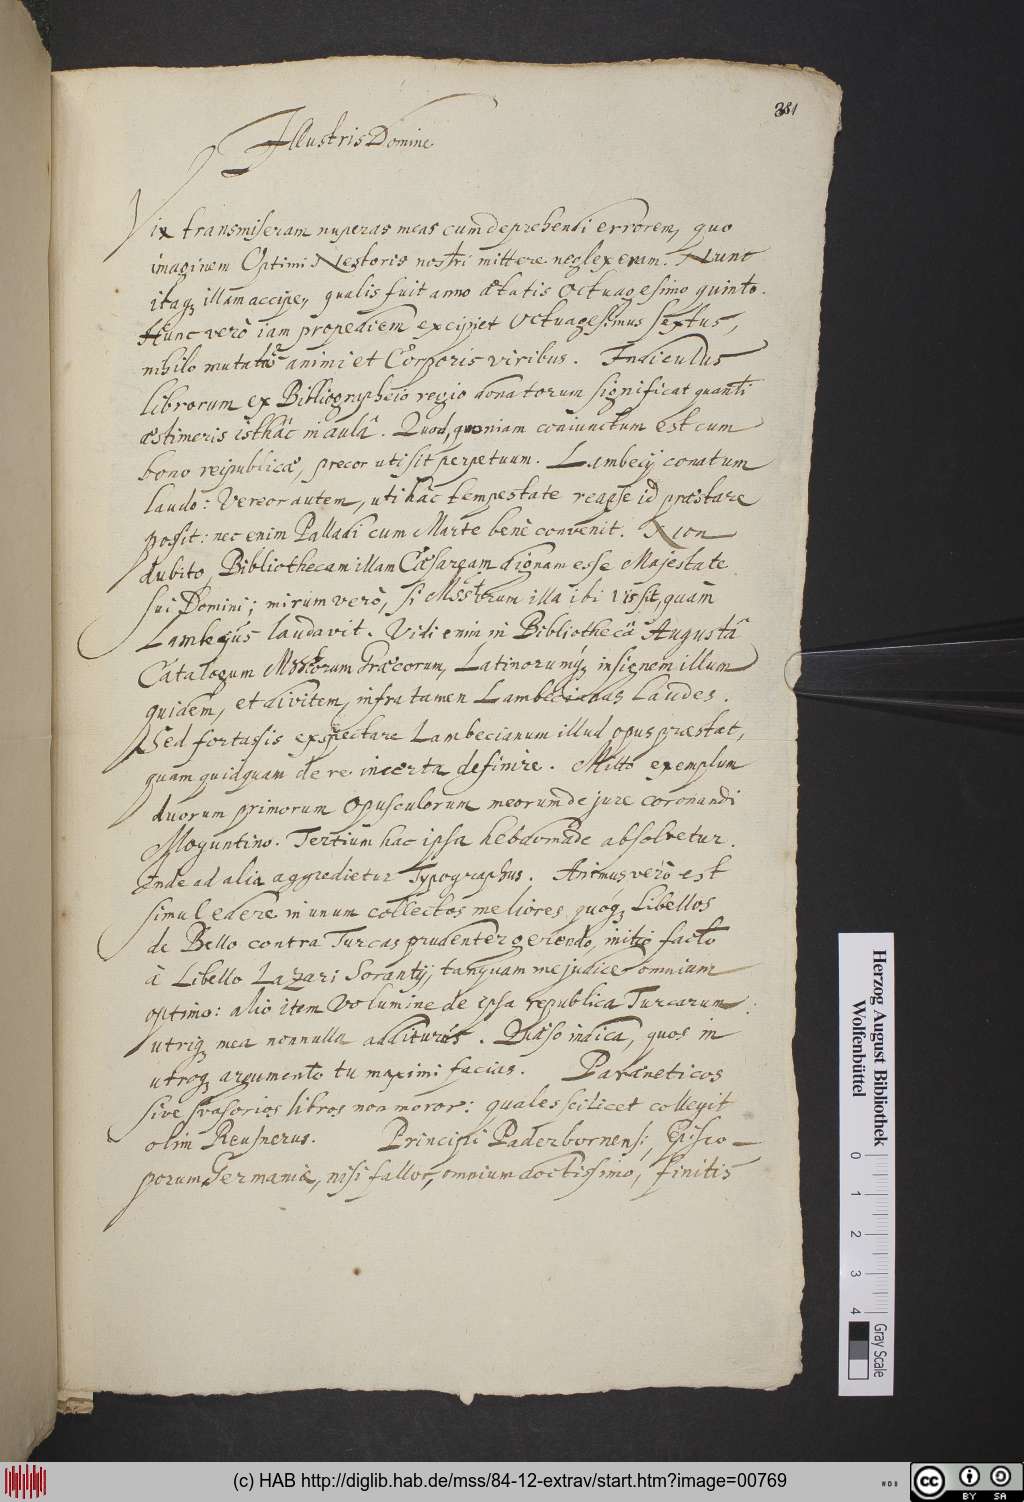 381
Illustris Domine
Vix transmiseram nuperas meas cum deprehendi errorem, quo
imaginem Optimi Nestoris nostri mittere neglexeram. Nunc
itaq; illam accipe, qualis fuit anno ætatis octuagesimo quinto.
Hunc verò iam propediem excipiet Octuagesimus sextus,
nihilo mutatis animi et Corporis viribus. Indiculus
librorum ex Bibliographeio regio donatorum significat quanti
æstimeris isthâc in aulâ. Quod, quoniam coniunctum est cum
bono reipublicæ, precor uti sit perpetuum. Lambecij conatum
laudo: Vereor autem, uti hâc tempestate reapse id præstare
possit: nec enim Palladi cum Marte benè convenit. Non
dubito, Bibliothecam illam Cæsaream dignam esse Majestate
sui Domini; mirum verò, si Msstorum illa ibi vis sit, quam
Lambecius laudavit. Vidi enim in Bibliothecâ Augustâ
Catalogum Msstorum Græcorum, Latinorumq; insignem illum
quidem, et divitem, infra tamen Lambecianas laudes.
Sed fortassis exspectare Lambecianum illud opus præstat,
quam quidquam de re incerta definire. Mitto exemplum
duorum primorum opusculorum meorum de jure coronandi
Moguntino. Tertium hac ipsa hebdomade absolvetur.
Inde ad alia aggredietur Typographus. Animus verò est
simul edere in unum collectos meliores quoq; Libellos
de Bello contra Turcas prudenter gerendo, initio facto
à Libello Lazari Sorantij, tanquam me judice omnium
optimo: alio item Volumine de ipsa republica Turcarum:
utriq; mea nonnulla additurus. Quæso indica, quos in
utroq; argumento tu maximi facias. Paræneticos
sive svasorios libros non moror: quales scilicet collegit
olim Reusnerus. Principi Paderbornensi, Episco-
porum Germaniæ, nisi fallor, omnium doctissimo, finitis
Herzog August Bibliothek
Wolfenbüttel
0 1 2 3 4
Gray Scale
(c) HAB http://diglib.hab.de/mss/84-12-extrav/start.htm?image=00769
cc BY SA